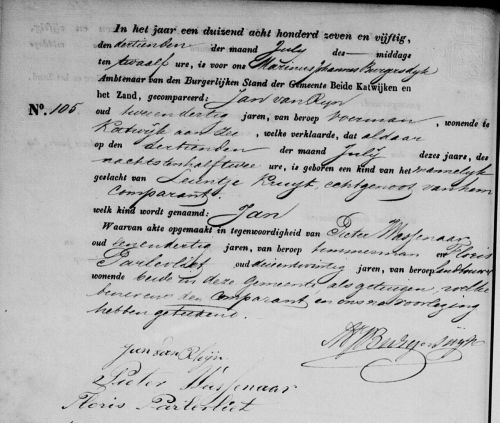 In het jaar een duizend acht honderd zeven en vijftig,
den dertienden der maand July des middags
ten twaalf ure, is voor ons Marinus Johannes Burgersdyk
Ambtenaar van den Burgerlijken Stand der Gemeente Beide Katwijken en
het Zand, gecompareerd: Jan van Ryn
No. 105. oud tweeendertig jaren, van beroep voerman, wonende te
Katwijk aan Zee, welke verklaarde, dat aldaar
op den dertienden der maand July dezes jaars, des
nachts ten half twee ure, is geboren een kind van het mannelijk
geslacht van Leuntje Kruyt, echtgenoot van hem
comparant.
welk kind wordt genaamd: Jan
Waarvan akte opgemaakt in tegenwoordigheid van Pieter Wassenaar
oud jaren, van beroep timmerman en Floris
Parlevliet oud jaren, van beroep
wonende beide in deze Gemeente als getuigen, welke
benevens den Comparant en ons na voorlezing
hebben geteekend.
Jan van Rhijn
Pieter Wassenaar
Floris Parlevliet